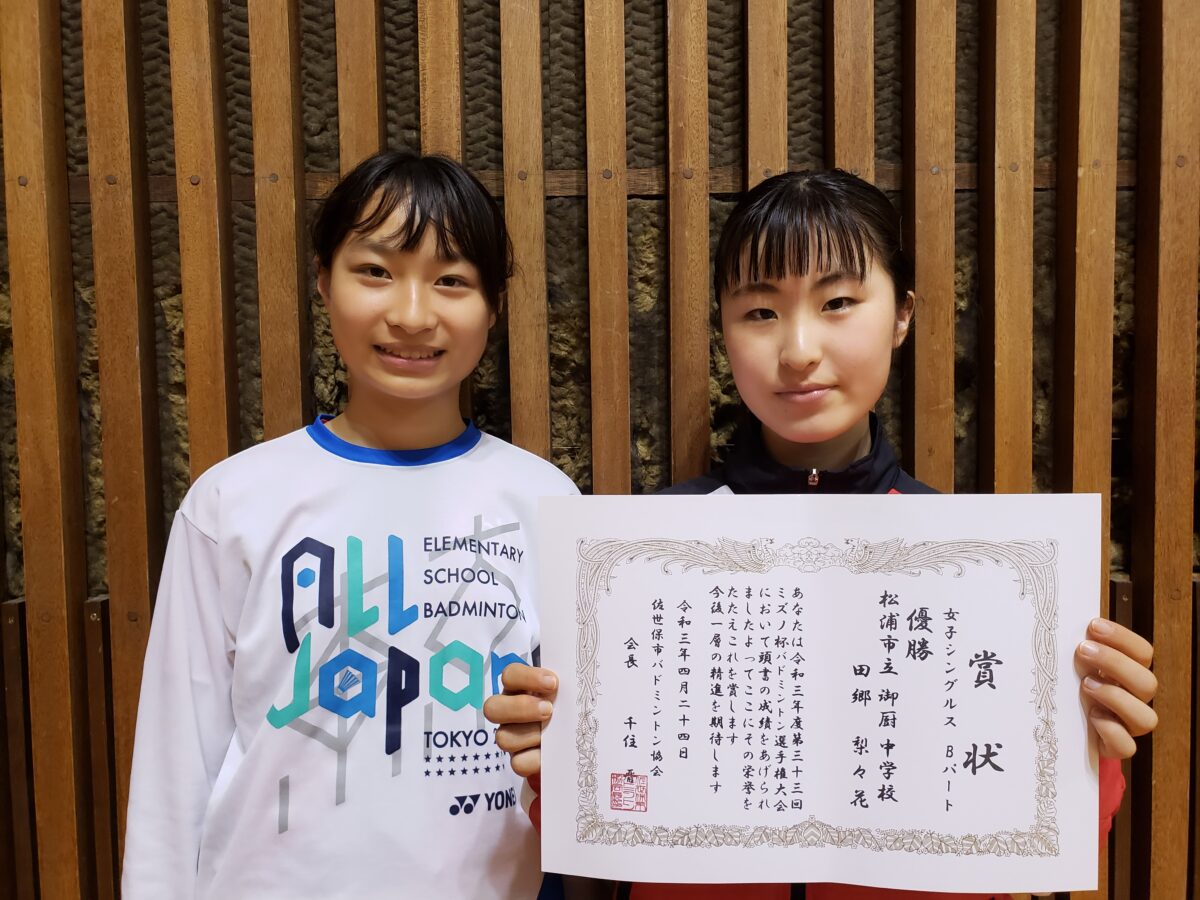 ALL
Japan
ELEMENTARY
SCHOOL
BADMINTON
TOKYO
YONEX
賞状
女子シングルス Bパート
優勝
松浦市立御厨中学校
田郷 梨々花
あなたは令和三年度第三十三回
ミズノ杯バドミントン選手権大会
において頭書の成績をあげられ
ましたよってここにその栄誉を
たたえこれを賞します
今後一層の精進を期待します
令和三年四月二十四日
佐世保市バドミントン協会
会長 千住